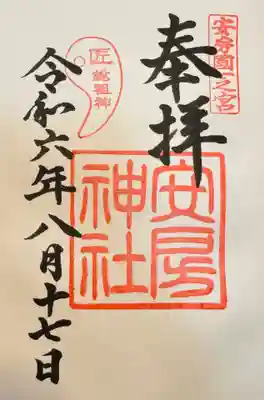 安房國一之宮
奉拝
安房
神社
匠
総祖神
令和六年八月十七日